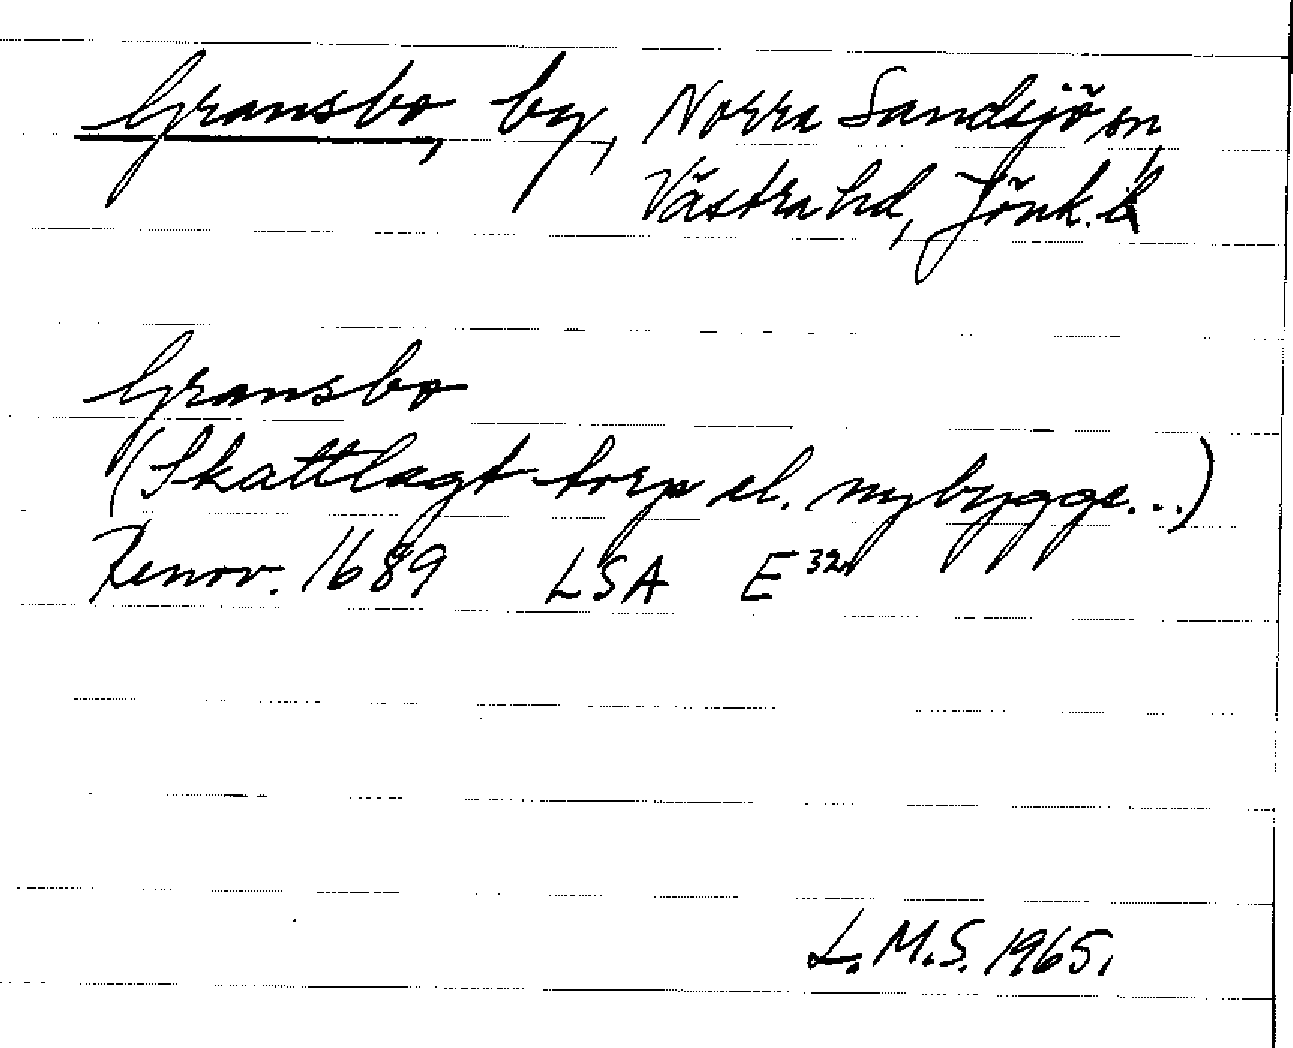 Gransbo, by, Norra Sandsjö sn,
Västra hd, Jönk. l.
Gransbo
(Skattlagt torp el. nybygge...)
Renov. 1689 LSA E 32
L.M.S. 1965.